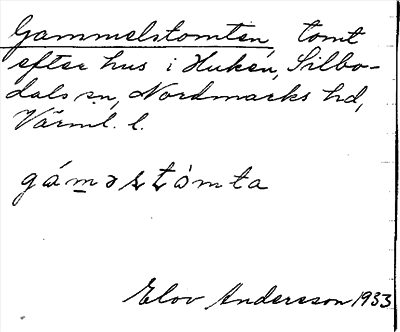 Gammelstomten, tomt
efter hus i Huken, Silbo-
dals sn, Nordmarks hd,
Värml. l.
Elov Andersson 1933